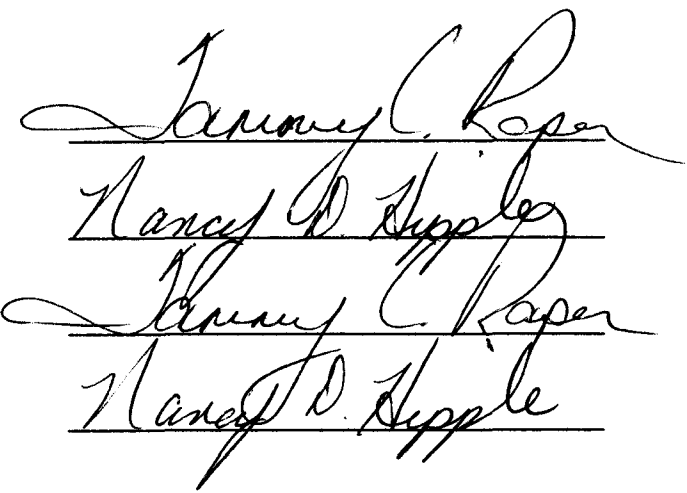 Tammy C. Roper
Nancy D. Hipple
Tammy C. Roper
Nancy D. Hipple